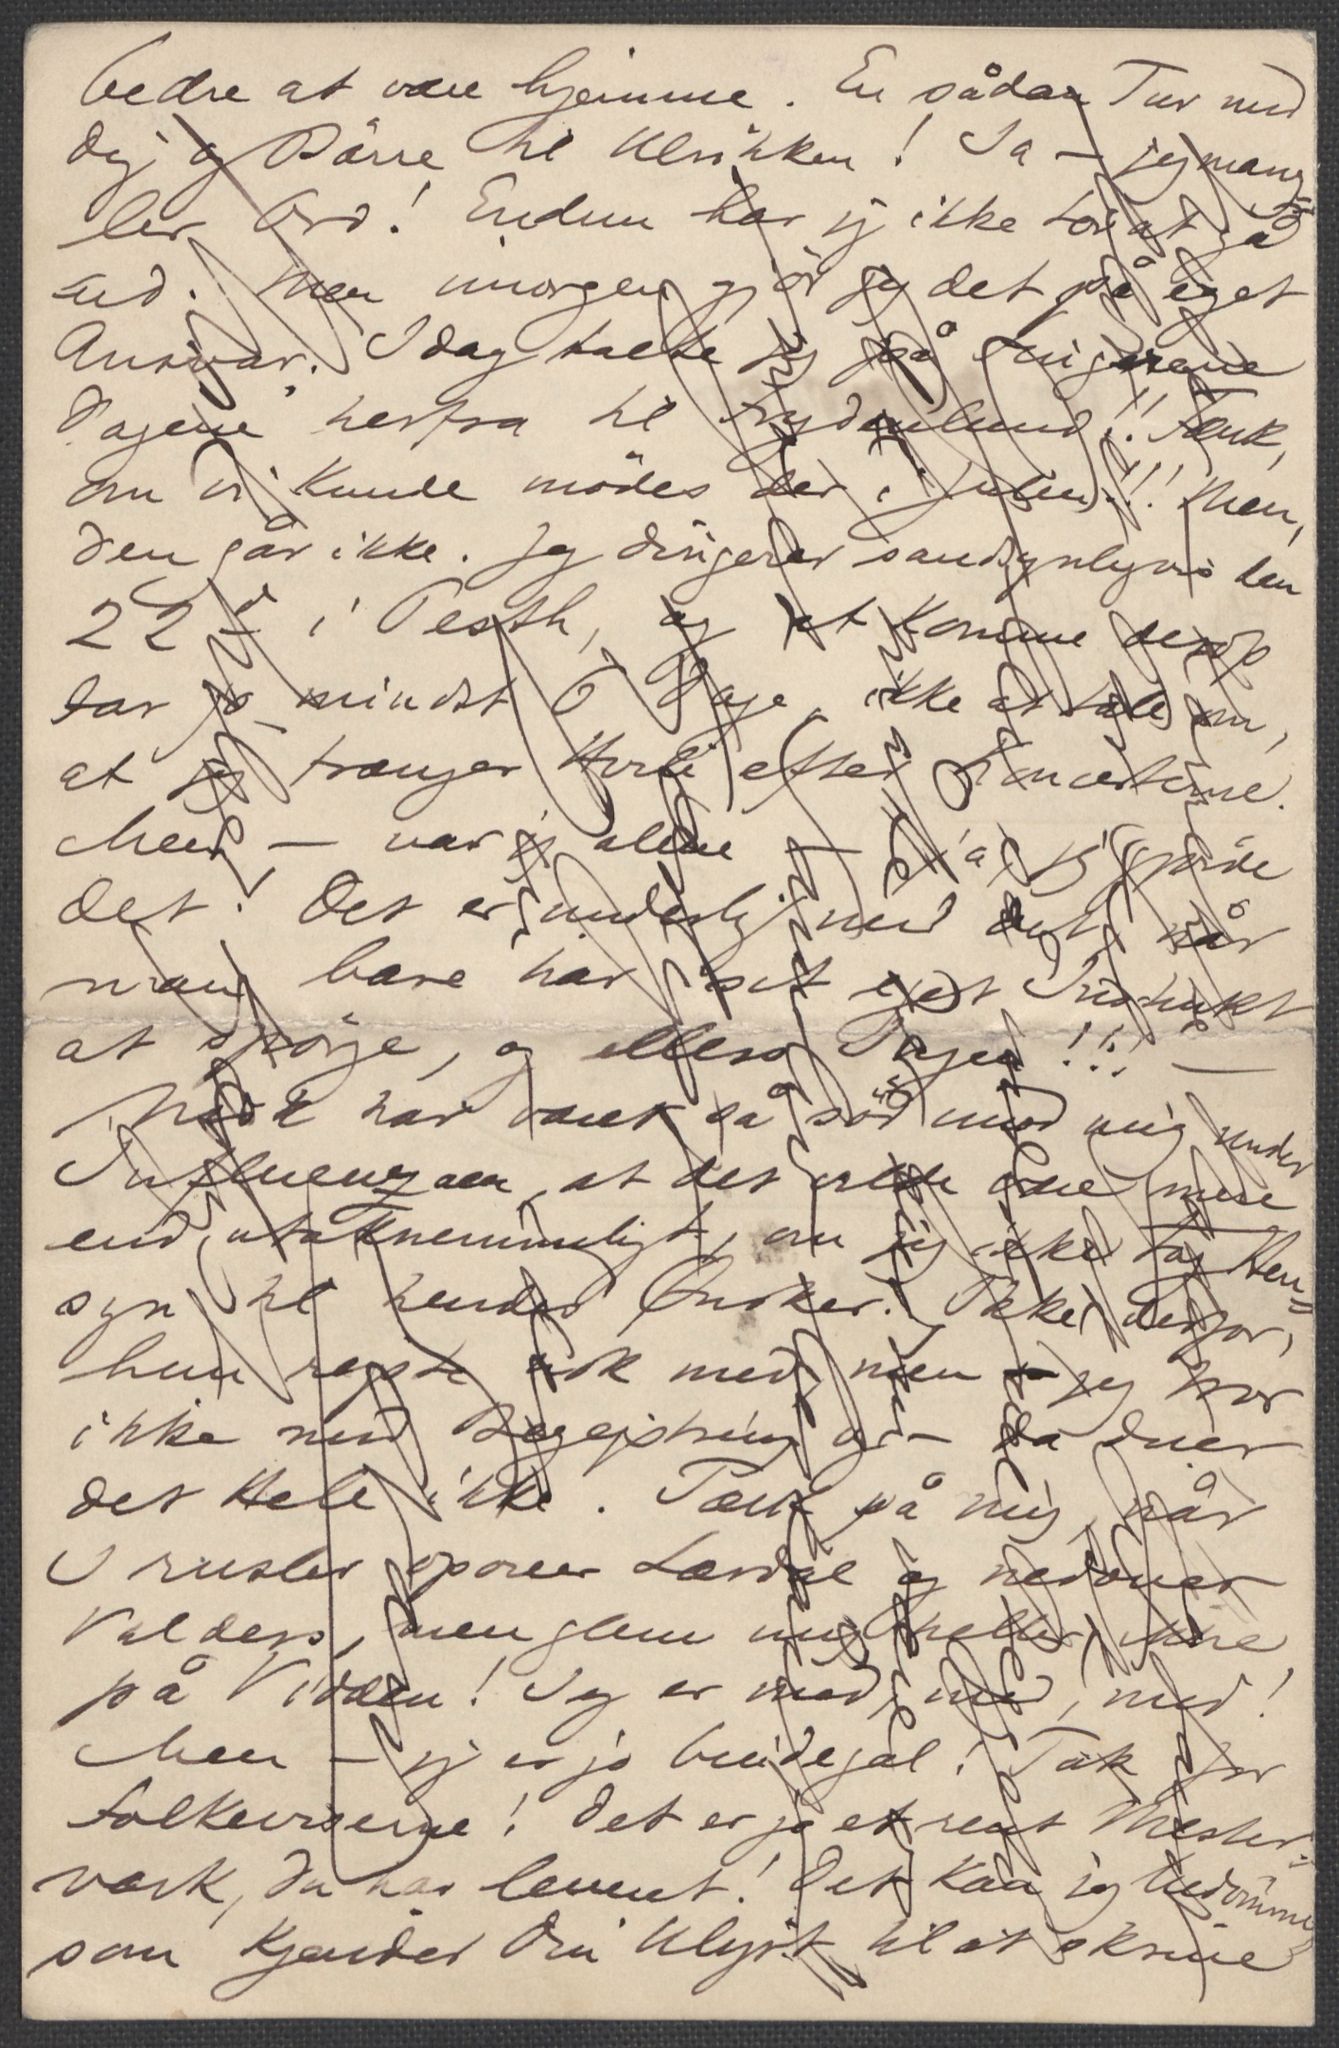 bedre at være hjemme. En sådan Tur med
dig og Börre til Ulrikken! Ja – jeg mang=
ler Ord! Endnu har jeg ikke Lov at gå
ud. Men imorgen gjör jeg det på eget
Ansvar. Idag talte jeg på Fingrene
Dagene herfra til Frydenlund!! Tænk,
om vi kunde mödes der i Julen!!! Men,
den går ikke. Jeg dirigerer sandsynligvis den
22d i Pesth, og at komme derop
tar jo mindst 6 Dage, ikke at tale om,
at jeg trænger Hvile efter Koncerterne.
Men, – var jeg alene – ja, jeg gjorde
det! Det er underligt med det, når
man bare har sit eget Instinkt
at spörge, og ellers Ingen!!! –
har været så söd mod mig under
Influenzaen, at det vilde være mere
end utaknemmeligt, om jeg ikke tog Hen=
syn til hendes Önsker. Ikke derfor,
hun rejste nok med, men – jeg tror
ikke med Begejstring og – da duer
det Hele ikke. Tænk på mig, når
I rusler opover Lærdal og nedover
Valders, men glem mig heller ikke
på Vidden! Jeg er med, med, med!
Men – jeg er jo bindegal! Tak for
Folkeviserne! Det er jo et rent Mester=
værk, du har levert! Det kan jeg bedömme,
som kjender din Ulyst til at skrive